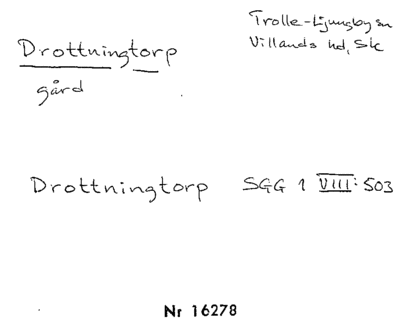 Drottningtorp
gård
Trolle-Ljungby sn
Villands hd, Sk
Drottningtorp SGG 1 VIII: 503
Nr 16278